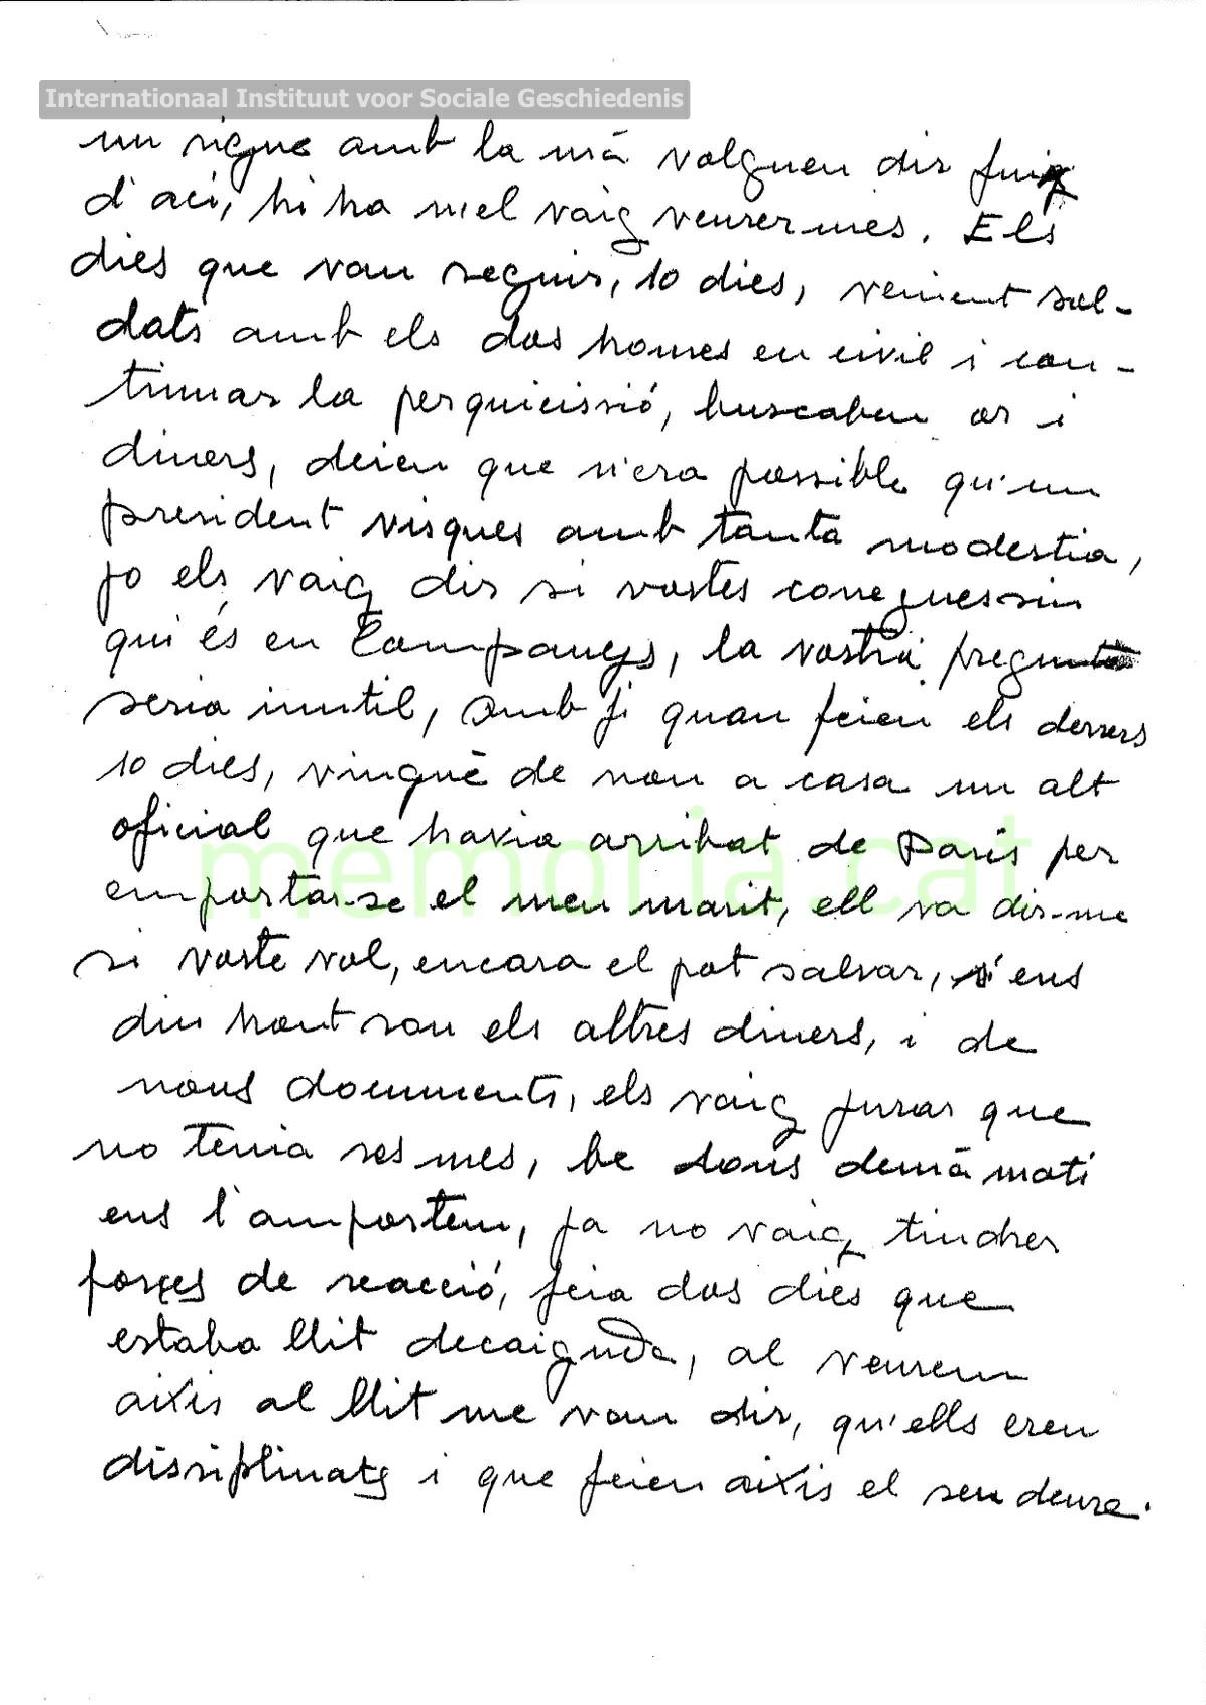 Internationaal Instituut voor Sociale Geschiedenis
un signe amb la mà volgueu dir fuig
d'aci, hi ha n'el vaig veurer mes. Els
dies que van seguir, 10 dies, venient sol-
dats amb els dos homes en civil i con-
tinuar la perquicissió, buscaben or i
diners, deien que n'era possible qu'un
president visques amb tanta modestia,
jo els vaig dir si vostes coneguessin
qui és en Companys, la vostra pregunta
seria inutil, amb fi quan feien els derrers
10 dies, vingué de nou a casa un alt
oficial que havia arribat de Paris per
emportar-se el meu marit, ell va dir-me
si voste vol, encara el pot salvar, s'ens
diu hont son els altres diners, i de
nous documents, els vaig jurar que
no tenia res mes, be dons demà mati
ens l'amportem, ja no vaig tindrer
forçes de reacció, feia dos dies que
estaba llit decaiguda, al veurem
aixis al llit me van dir, qu'ells eren
dissiplinats i que feien aixis el seu deure.
memoria.cat